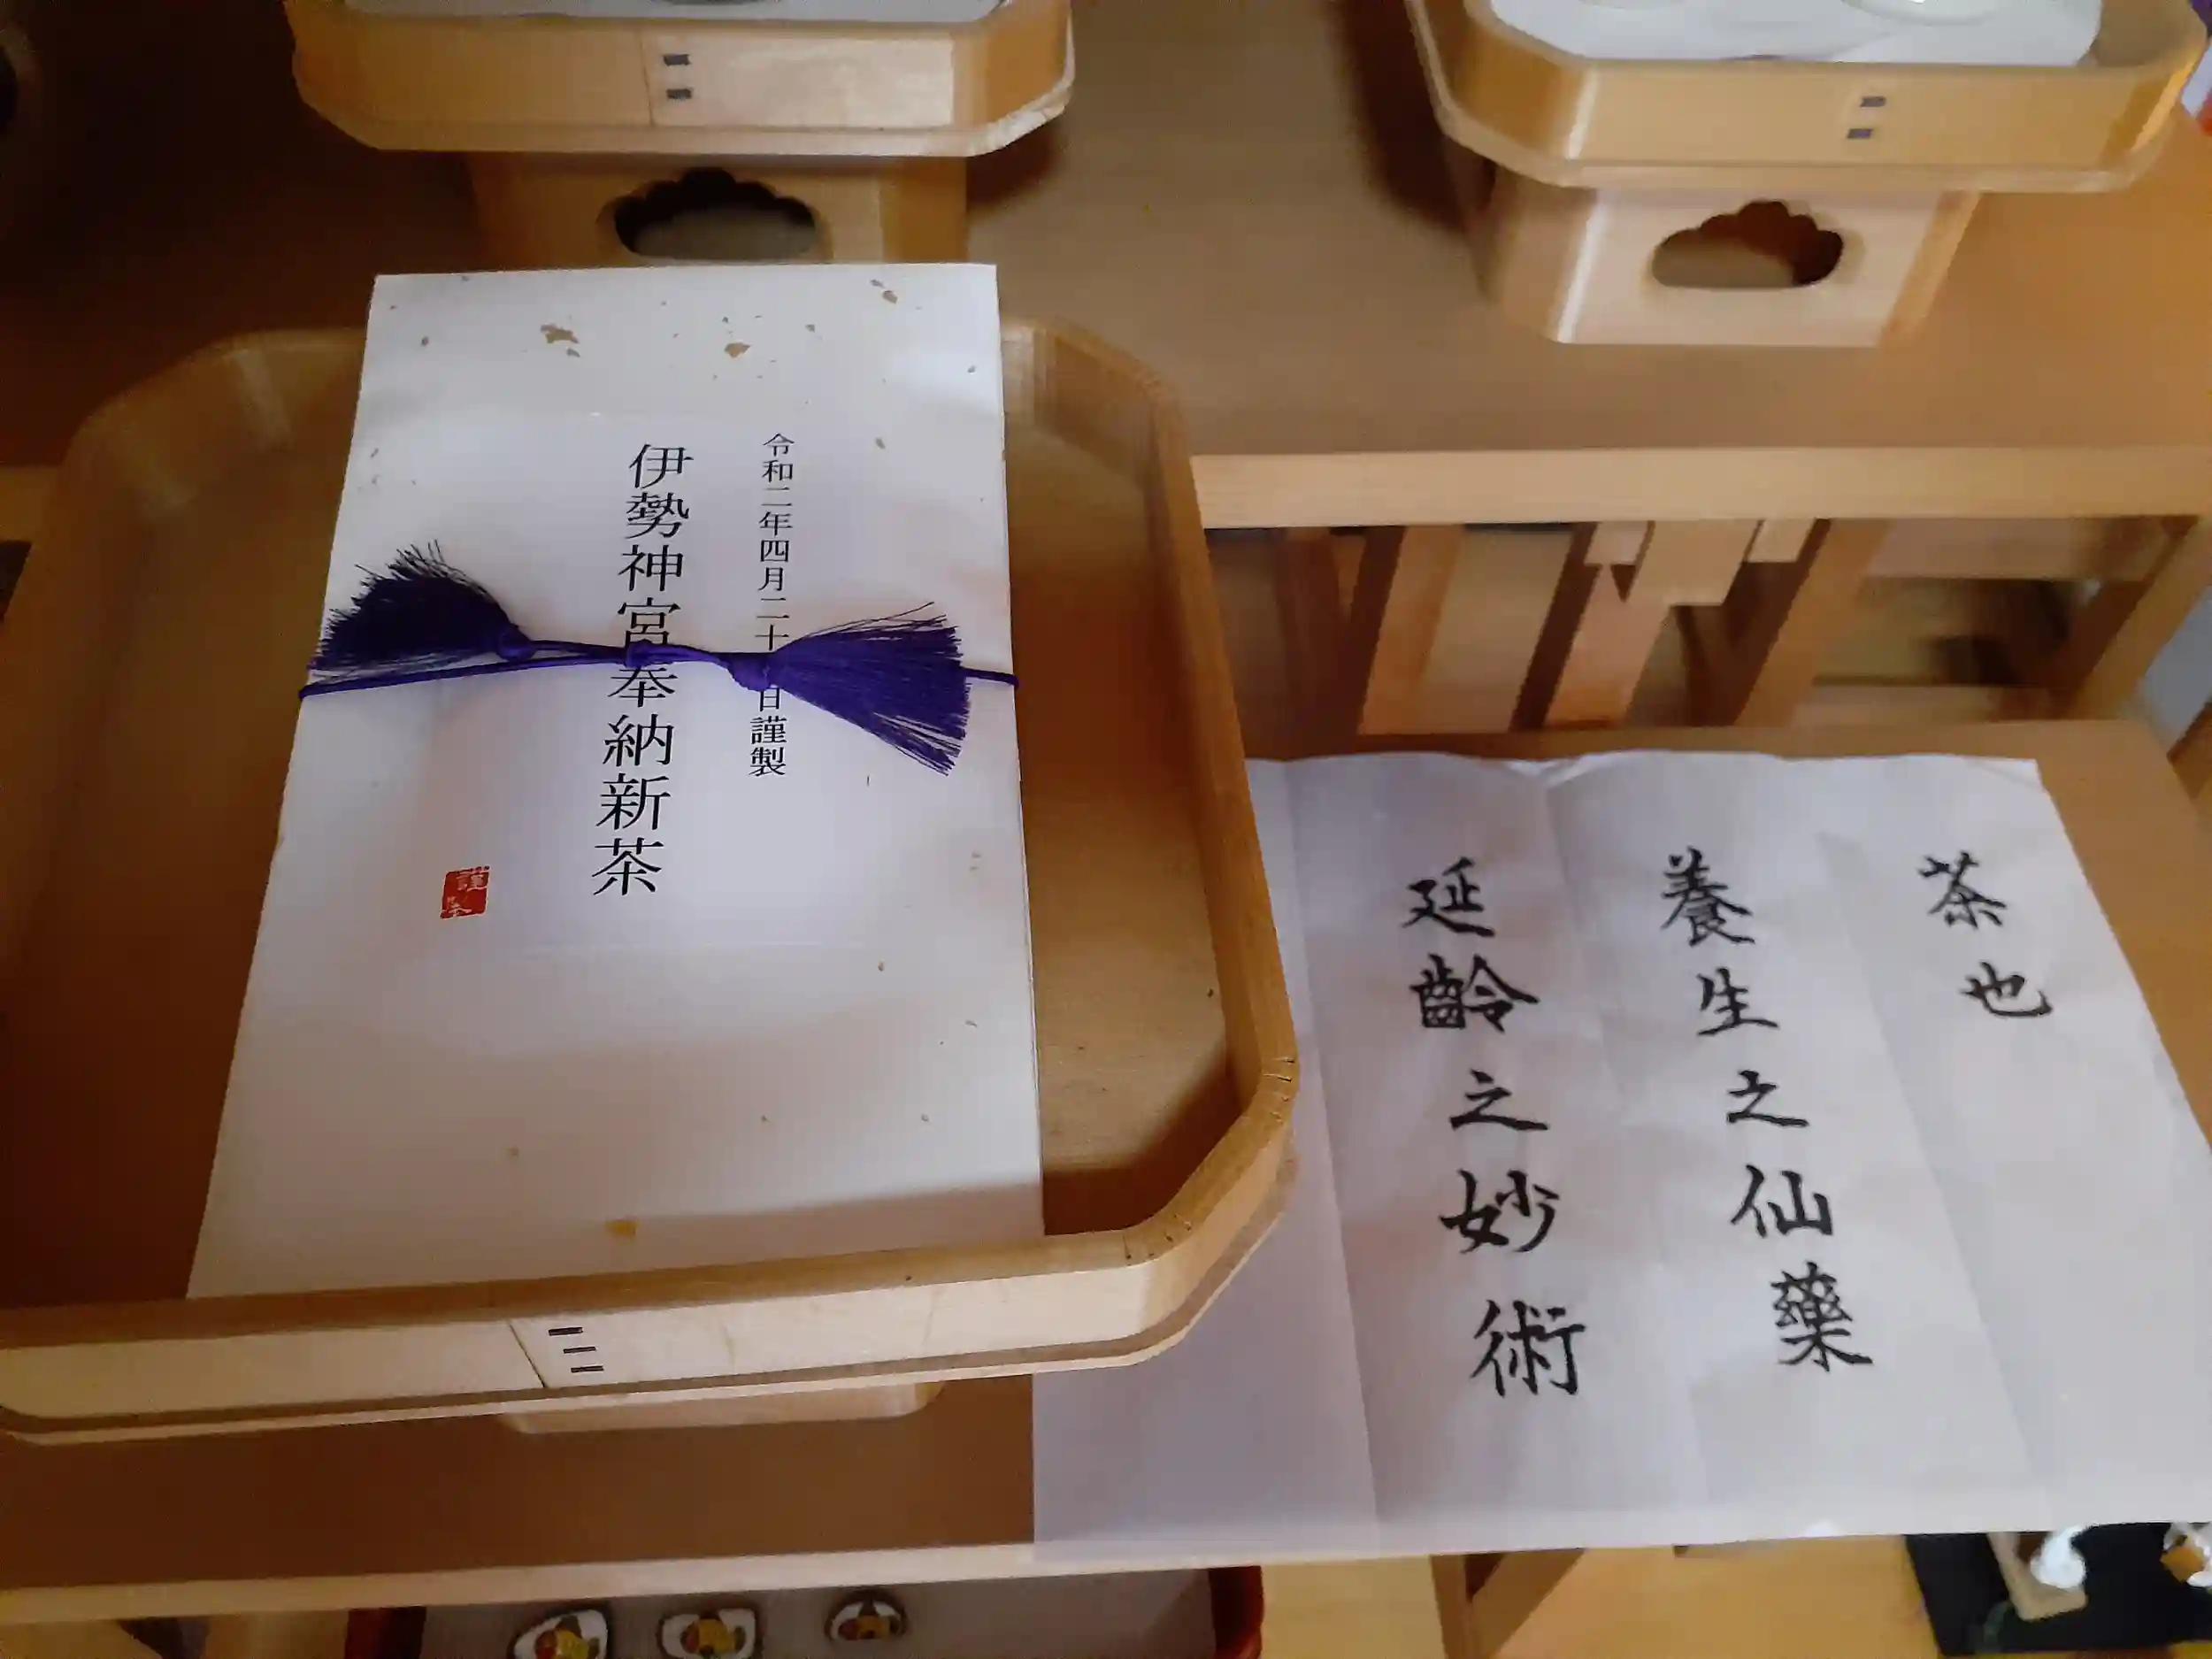 令和二年四月二十日謹製
伊勢神宮奉納新茶
謹製
茶也
養生之仙藥
延齡之妙術